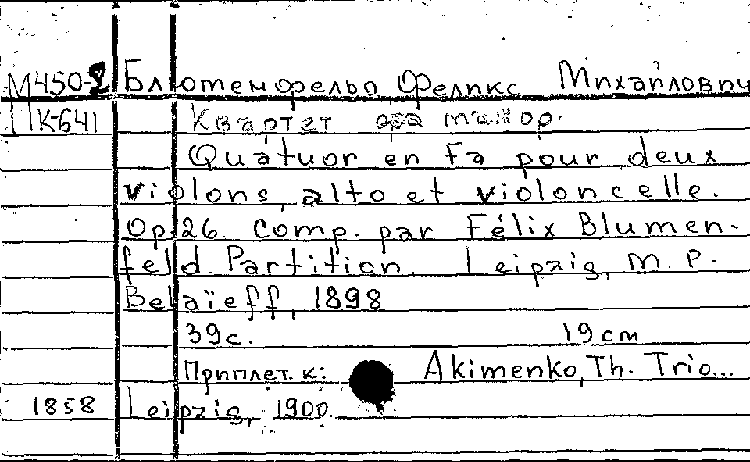 М450-2 Блюменфельд Феликс Михайлович
ПК-641 Квартет фа мажор.
Quatuor en Fa pour deux
violons, alto et violoncelle.
Op. 26. Comp. par Félix Blumen-
feld Partition. Leipzig, M. P.
Belaïeff, 1898
39с. 19 cm
Приплет. к: Akimenko, Th. Trio...
1858 Leipzig, 1900.